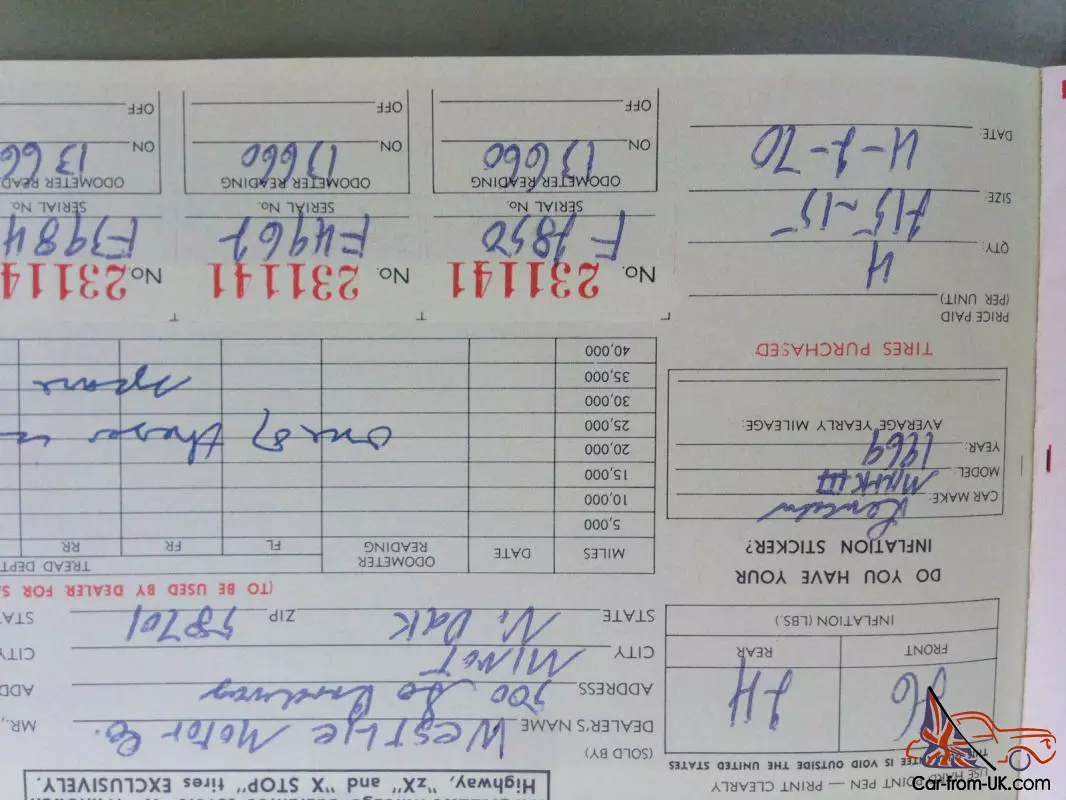 Highway, "zX" and "X STOP" tires EXCLUSIVELY.
USE HARD POINT PEN — PRINT CLEARLY
THIS GUARANTEE IS VOID OUTSIDE THE UNITED STATES
(SOLD BY)
DEALER'S NAME Westlie Motor Co.
ADDRESS 500 So Broadway
CITY MINOT
STATE N. Dak ZIP 58701
MR.,
ADD
CITY
STAT
26 24
FRONT REAR
INFLATION (LBS.)
DO YOU HAVE YOUR
INFLATION STICKER?
CAR MAKE: Lincoln
MODEL: MARK III
YEAR: 1969
AVERAGE YEARLY MILEAGE:
TIRES PURCHASED
PRICE PAID
(PER UNIT)
QTY: 4
SIZE: 215-15
DATE: 4-2-70
(TO BE USED BY DEALER FOR S
MILES DATE ODOMETER READING TREAD DEPT
FL FR RR
5,000
10,000
15,000
20,000
25,000 one of these is
30,000
35,000 spare
40,000
No. 231141 No. 231141 No. 231141
F2850 F4962 F3984
SERIAL No. SERIAL No. SERIAL No.
ODOMETER READING ODOMETER READING ODOMETER READ
ON 13660 ON 13660 ON 1366
OFF OFF OFF
Car-from-UK.com